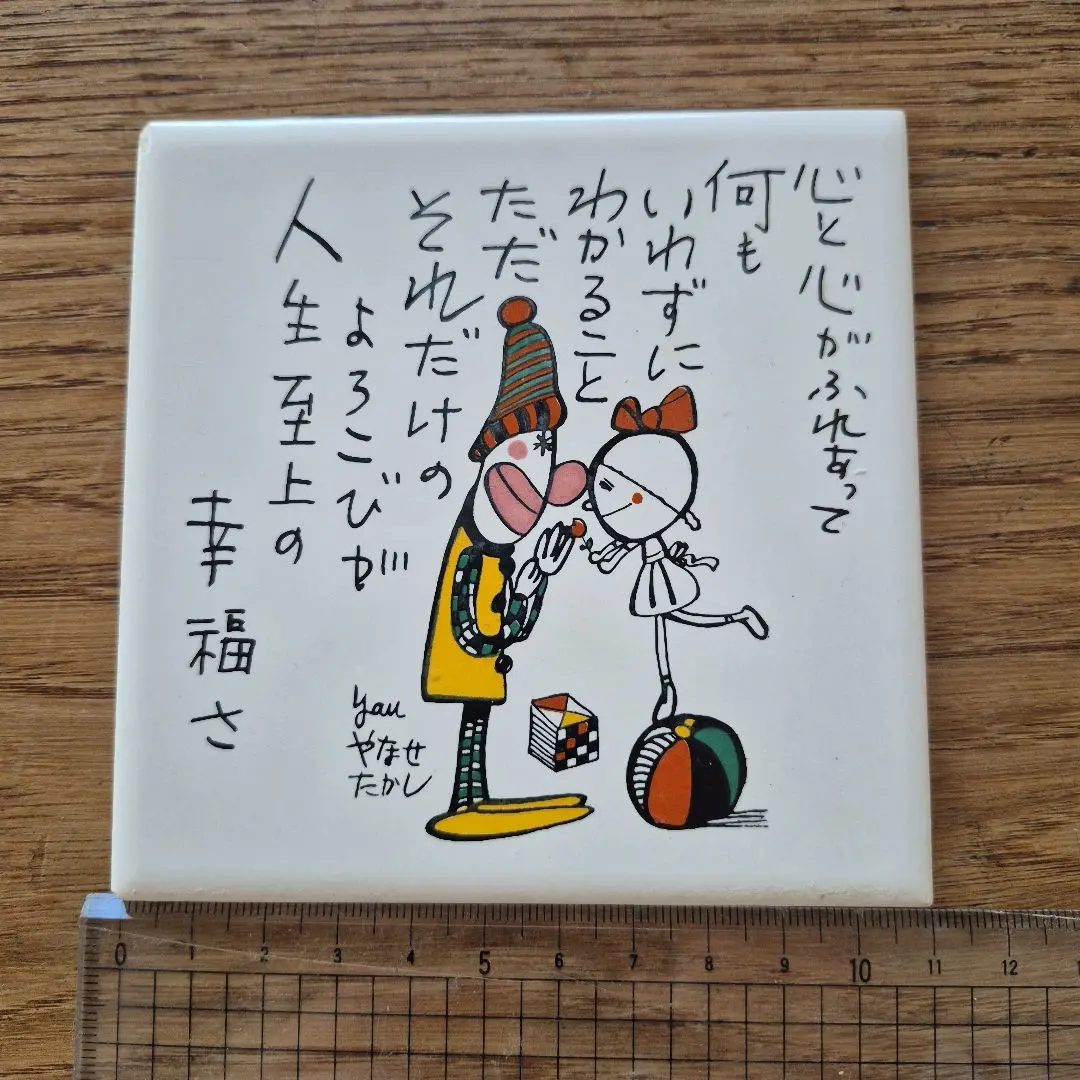 心と心がふれあって
何も
いわずに
わかること
ただ
それだけの
よろこびが
人生至上の
幸福さ
yau
やなせ
たかし
0 1 2 3 4 5 6 7 8 9 10 11 12